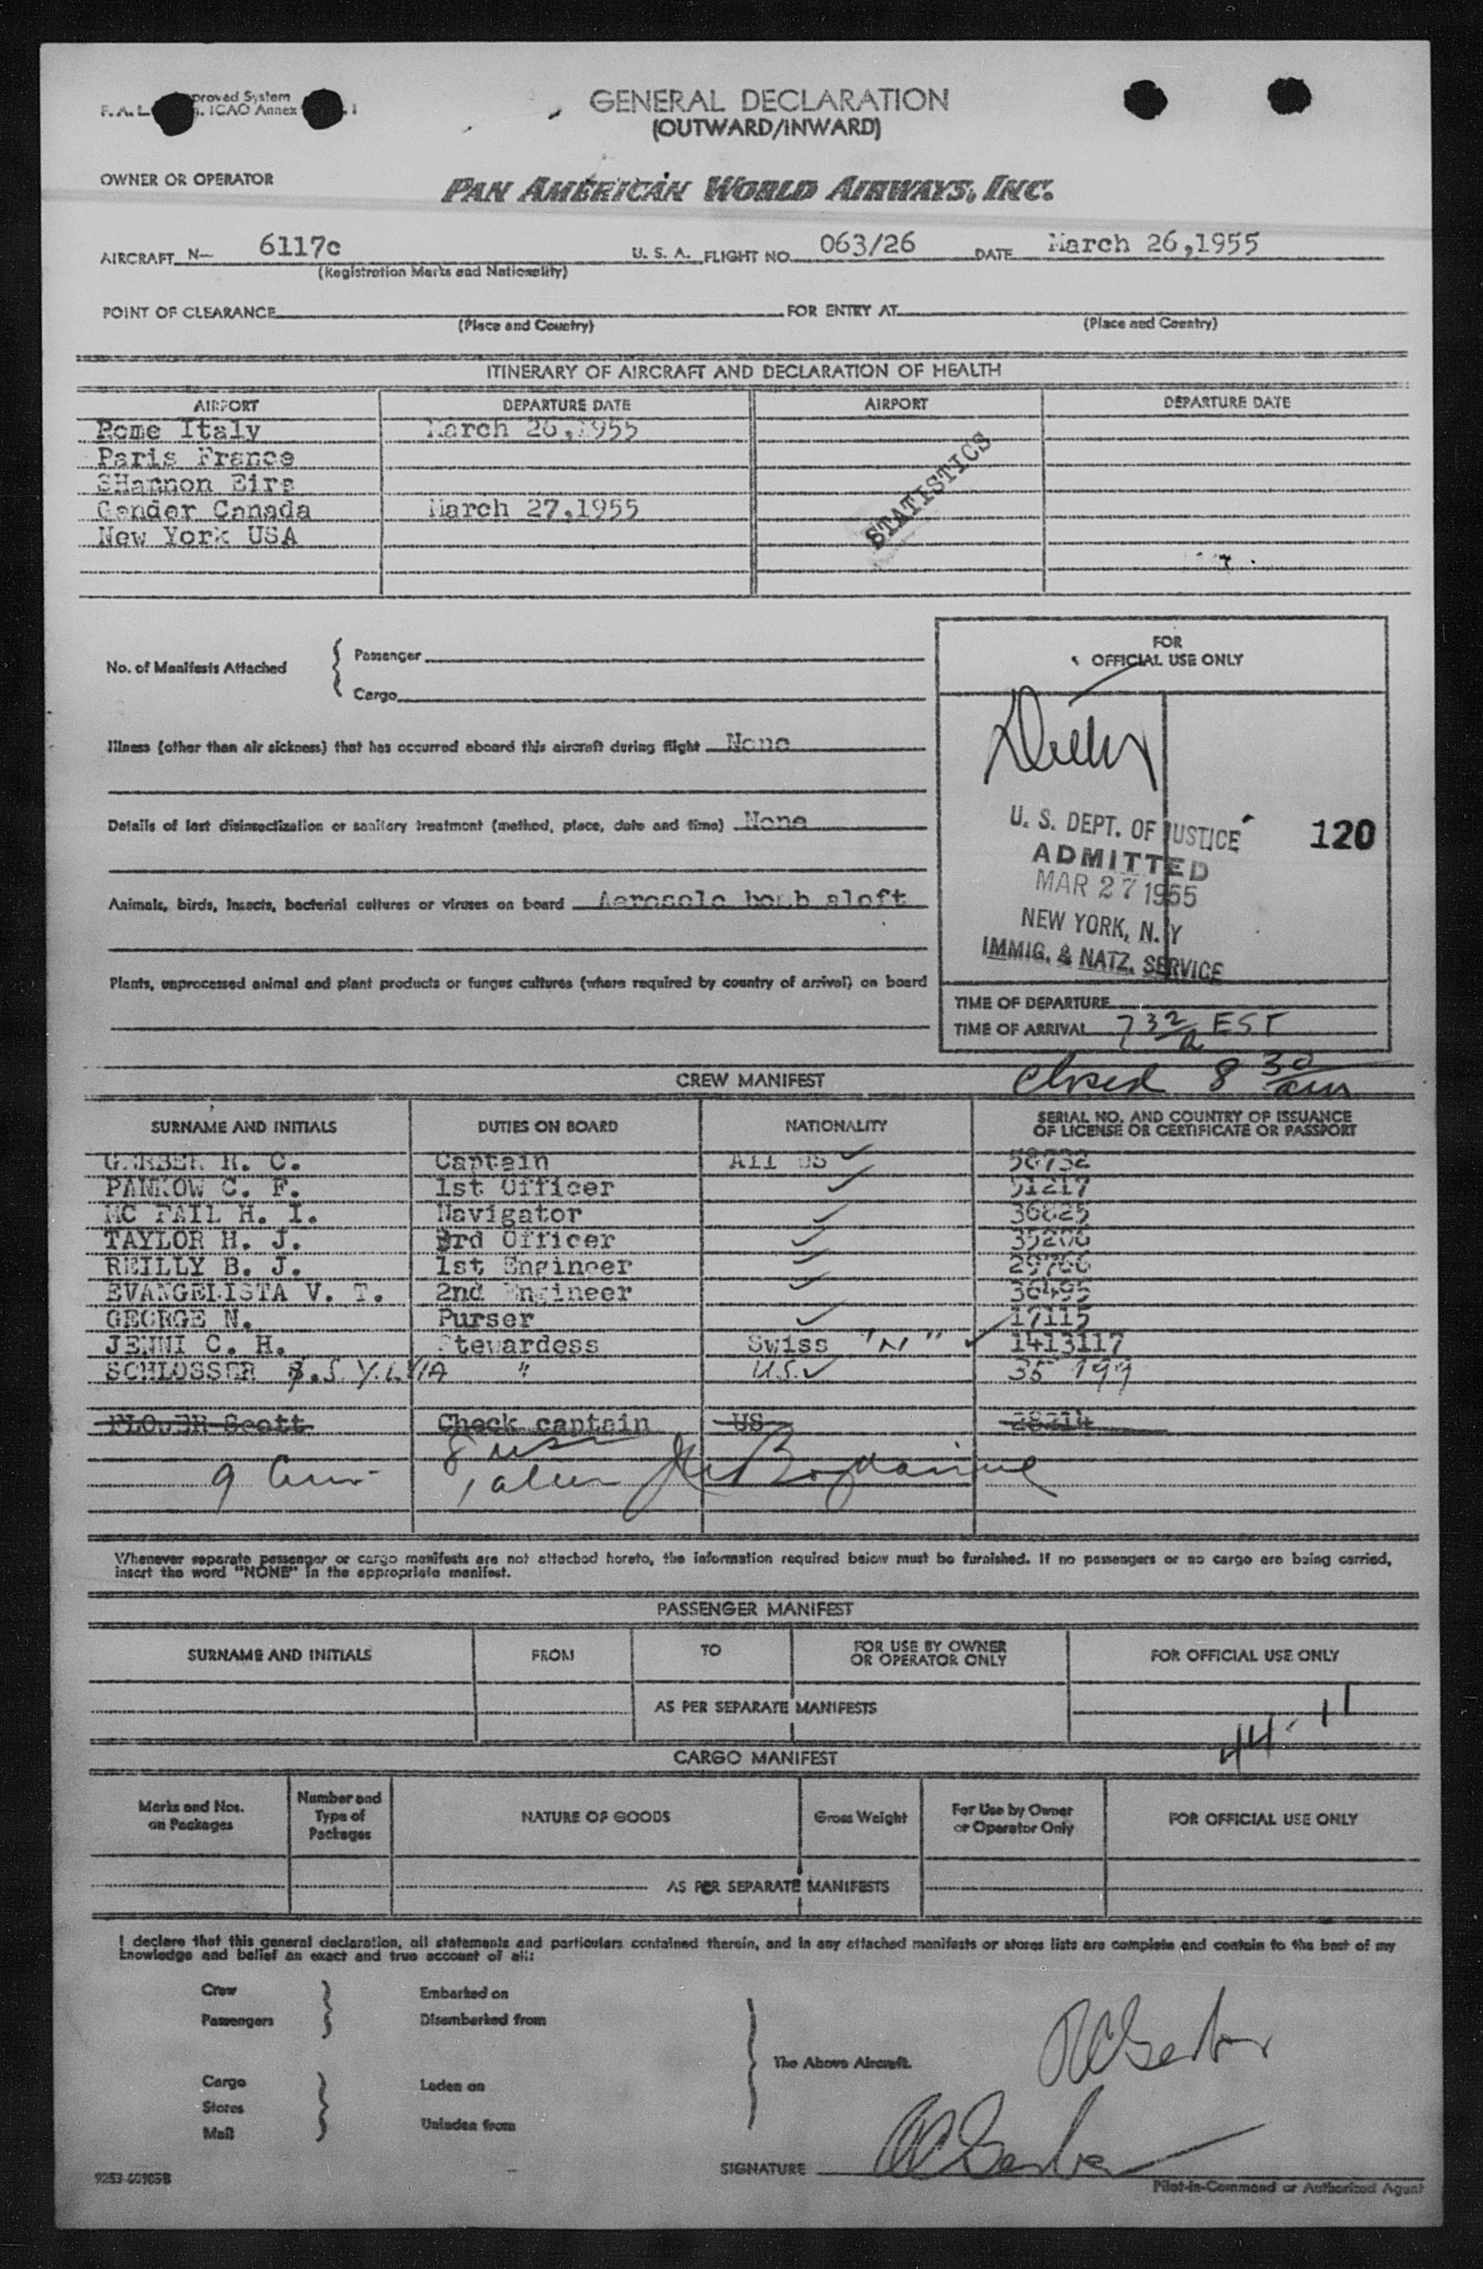 Approved System
F. A. L. ICAO Annex
GENERAL DECLARATION
(OUTWARD/INWARD)
OWNER OR OPERATOR
PAN AMERICAN WORLD AIRWAYS, INC.
AIRCRAFT N— 6117c U. S. A. FLIGHT NO. 063/26 DATE March 26,1955
(Registration Marks and Nationality)
POINT OF CLEARANCE FOR ENTRY AT
(Place and Country) (Place and Country)
ITINERARY OF AIRCRAFT AND DECLARATION OF HEALTH
AIRPORT DEPARTURE DATE AIRPORT DEPARTURE DATE
Rome Italy March 26,1955
Paris France
SHannon Eire
Gander Canada March 27,1955
New York USA
STATISTICS
FOR
OFFICIAL USE ONLY
No. of Manifests Attached { Passenger
Cargo
Illness (other than air sickness) that has occurred aboard this aircraft during flight None
Details of last disinsectization or sanitary treatment (method, place, date and time) None
U. S. DEPT. OF JUSTICE 120
ADMITTED
MAR 27 1955
NEW YORK, N. Y
IMMIG. & NATZ. SERVICE
Animals, birds, insects, bacterial cultures or viruses on board Aerosole bomb aloft
Plants, unprocessed animal and plant products or fungus cultures (where required by country of arrival) on board
TIME OF DEPARTURE
TIME OF ARRIVAL 7 32/a EST
closed 8 30/am
CREW MANIFEST
SURNAME AND INITIALS DUTIES ON BOARD NATIONALITY SERIAL NO. AND COUNTRY OF ISSUANCE
OF LICENSE OR CERTIFICATE OR PASSPORT
GERBER R. C. Captain All US ✓ 58732
PANKOW C. F. 1st Officer ✓ 51217
MC PAIL H. I. Navigator ✓ 36825
TAYLOR H. J. 3rd Officer ✓ 35206
REILLY B. J. 1st Engineer ✓ 29766
EVANGELISTA V. T. 2nd Engineer ✓ 36495
GEORGE N. Purser ✓ 17115
JENNI C. H. Stewardess Swiss "N" ✓ 1413117
SCHLOSSER S. SYLVIA " U.S. ✓ 35 199
FLOWER Scott Check captain US
9 Crew 8 usc
1 alien
Whenever separate passenger or cargo manifests are not attached hereto, the information required below must be furnished. If no passengers or no cargo are being carried,
insert the word "NONE" in the appropriate manifest.
PASSENGER MANIFEST
SURNAME AND INITIALS FROM TO FOR USE BY OWNER
OR OPERATOR ONLY FOR OFFICIAL USE ONLY
AS PER SEPARATE MANIFESTS
44 - 11
CARGO MANIFEST
Marks and Nos.
on Packages Number and
Type of
Packages NATURE OF GOODS Gross Weight For Use by Owner
or Operator Only FOR OFFICIAL USE ONLY
AS PER SEPARATE MANIFESTS
I declare that this general declaration, all statements and particulars contained therein, and in any attached manifests or stores lists are complete and contain to the best of my
knowledge and belief an exact and true account of all:
Crew Embarked on
Passengers Disembarked from
The Above Aircraft.
RCGerber
Cargo Laden on
Stores
Mail Unladen from
SIGNATURE RCGerber
Pilot-in-Command or Authorized Agent
9253 60905B